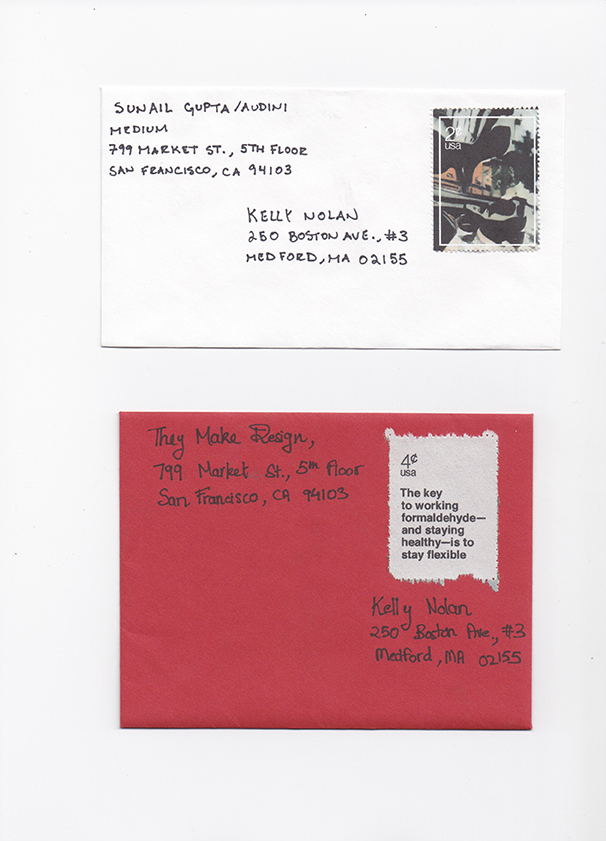 SUNAIL GUPTA/AUDINI
MEDIUM
799 MARKET ST., 5TH FLOOR
SAN FRANCISCO, CA 94103
2¢
usa
KELLY NOLAN
250 BOSTON AVE., #3
MEDFORD, MA 02155
They Make Design,
799 Market St., 5th Floor
San Francisco, CA 94103
4¢
usa
The key
to working
formaldehyde—
and staying
healthy—is to
stay flexible
Kelly Nolan
250 Boston Ave., #3
Medford, MA 02155